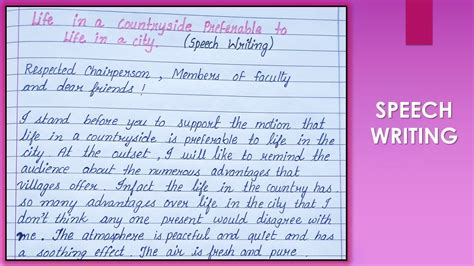 Life in a Countryside Preferable to
Life in a city. (Speech Writing)
Respected Chairperson, Members of faculty
and dear friends!
I stand before you to support the motion that
life in a countryside is preferable to life in the
city. At the outset, I will like to remind the
audience about the numerous advantages that
villages offer. Infact the life in the country has
so many advantages over life in the city that I
don't think any one present would disagree with
me. The atmosphere is peaceful and quiet and has
a soothing effect. The air is fresh and pure.
SPEECH
WRITING